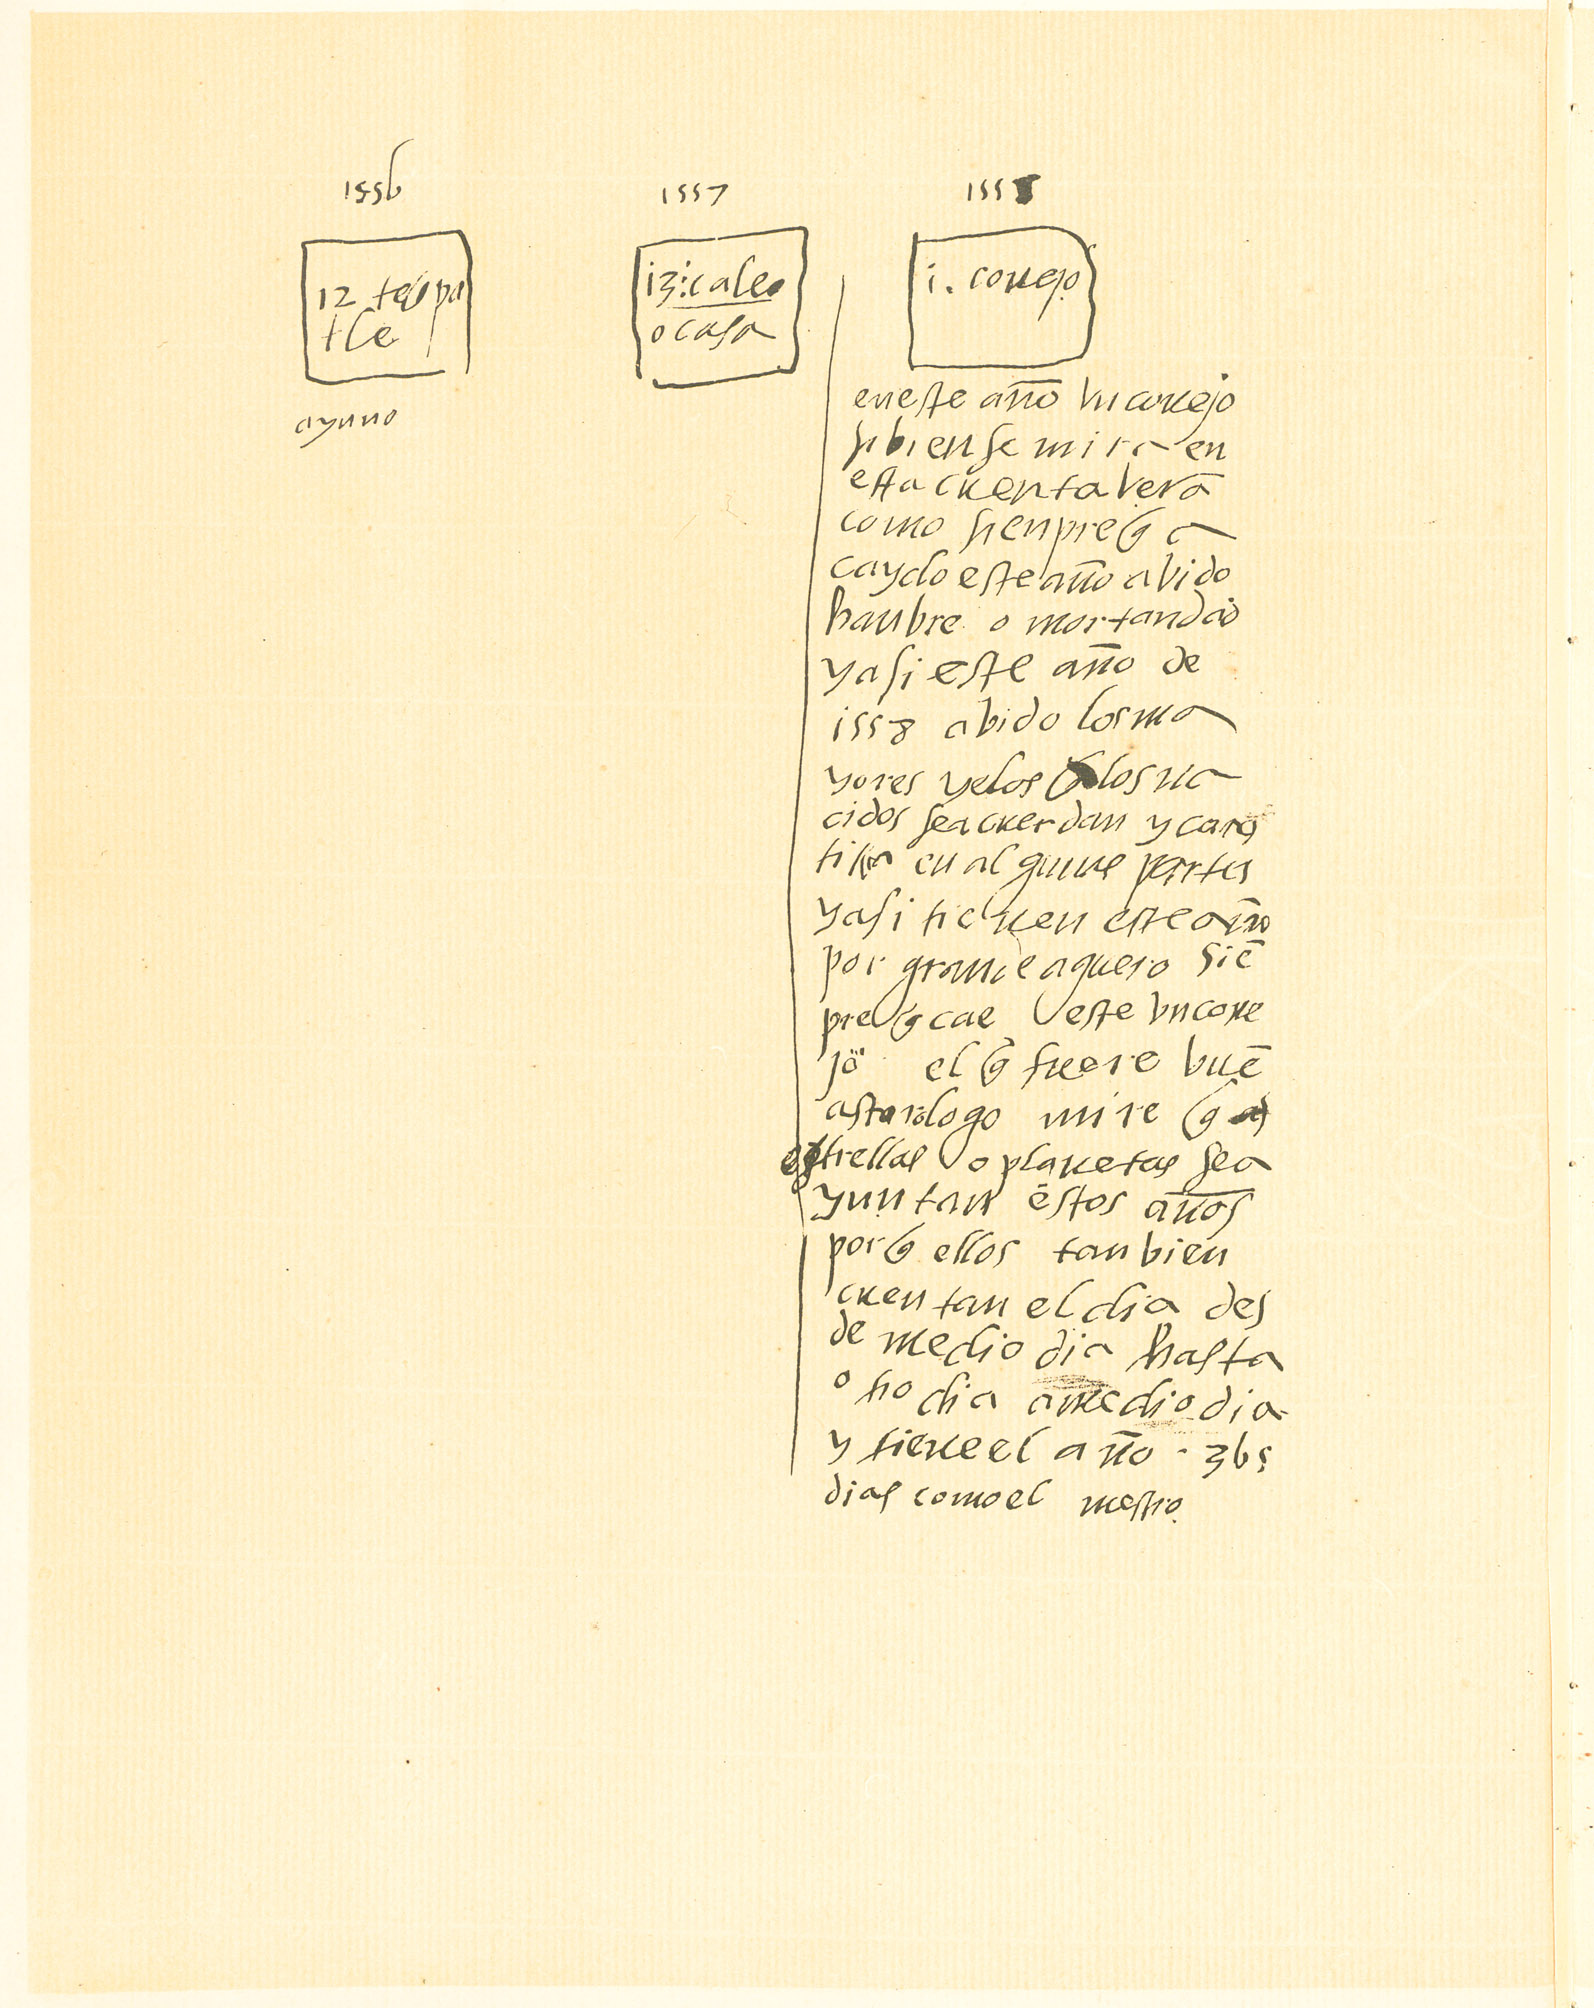 1556
12 tecpa
tle
ayuno
1557
13: cale
o casa
1558
i. conejo
en este año vn conejo
si bien se mira en
esta cuenta verā
como sienpre q̄ a
caydo este año abido
hanbre o mortandad
y asi este año de
1558 abido los ma
yores yelos q̄ los na
cidos se acuerdan y cares
tia en algunas partes
y asi tienen este año
por grande aguero siē
pre q̄ cae este vn cone
jo el q̄ fuere buē
astorologo mire q̄
estrellas o planetas se a
yuntan estos años
porq̄ ellos tanbien
cuentan el dia des
de medio dia hasta
otro dia a medio dia
y tiene el año . 365
dias como el nuestro.